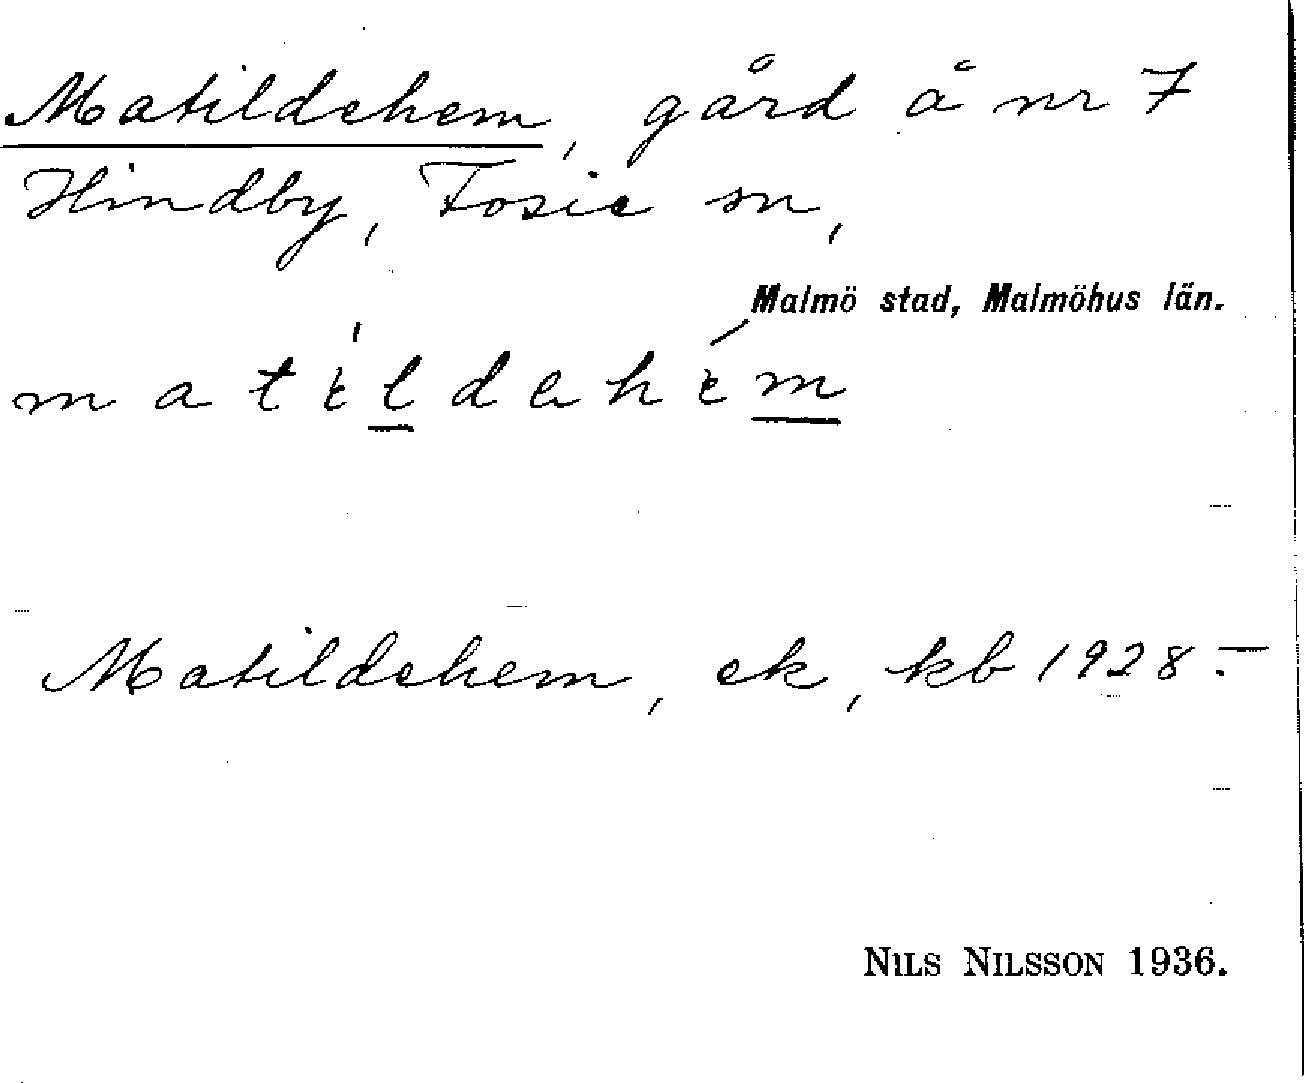 Matildehem, gård å nr 7
Hindby, Fosie sn,
Malmö stad, Malmöhus län.
matildahem
Matildehem, ek, kb 1928.–
NILS NILSSON 1936.